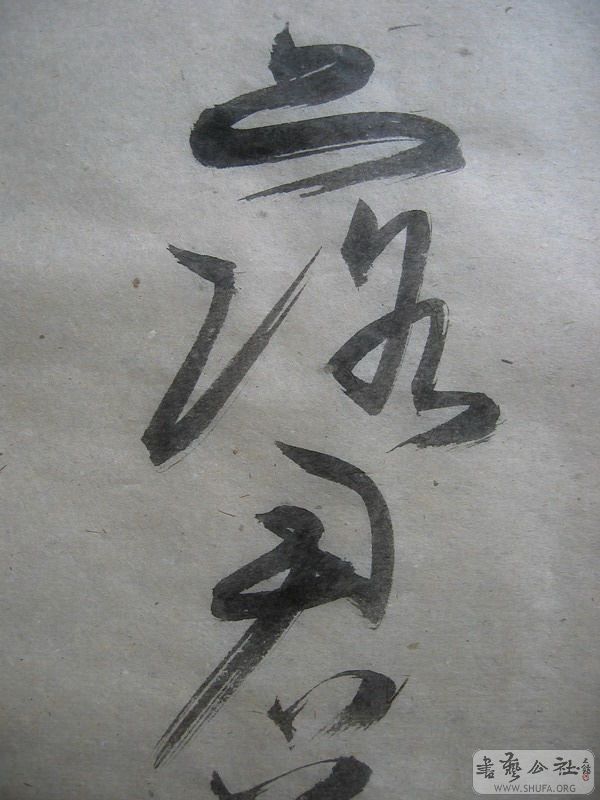 落
君
書藝公社
WWW.SHUFA.ORG